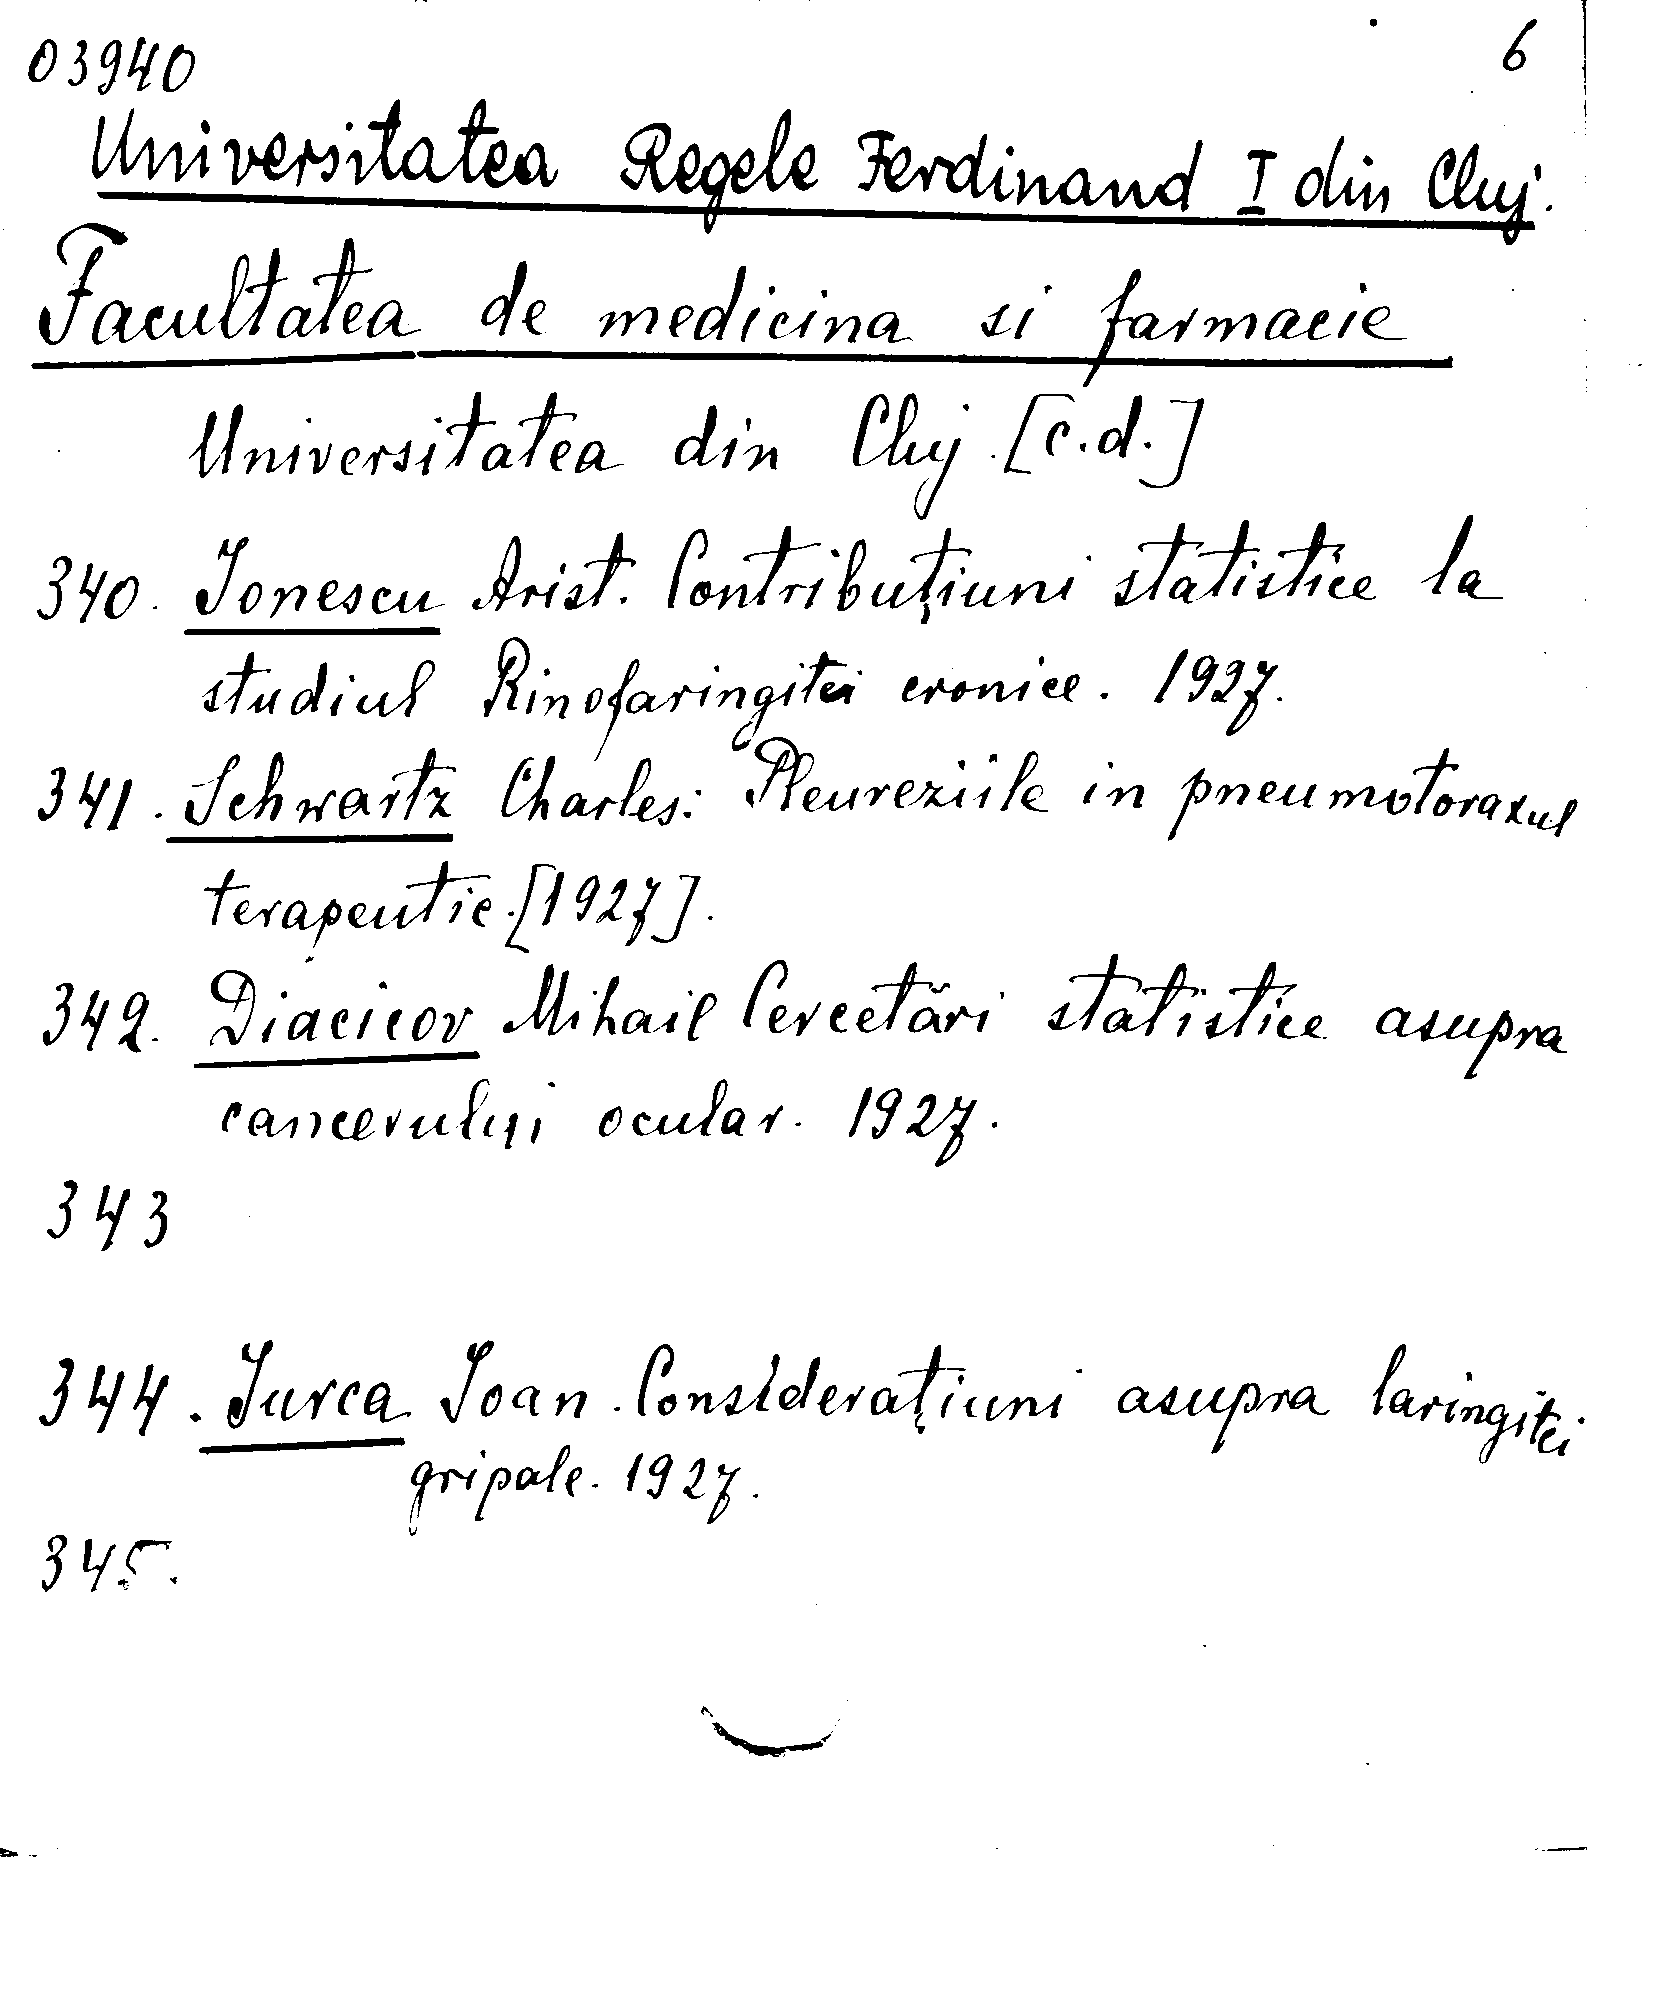 03940 6
Universitatea Regele Ferdinand I din Cluj.
Facultatea de medicina si farmacie
Universitatea din Cluj [c.d.]
340. Ionescu Arist. Contribuţiuni statistice la
studiul Rinofaringitei cronice. 1927.
341. Schwartz Charles: Pleureziile in pneumotoraxul
terapeutic. [1927].
342. Diacicov Mihail Cercetări statistice asupra
cancerului ocular. 1927.
343
344. Jurca Ioan. Consideraţiuni asupra laringitei
gripale. 1927.
345.